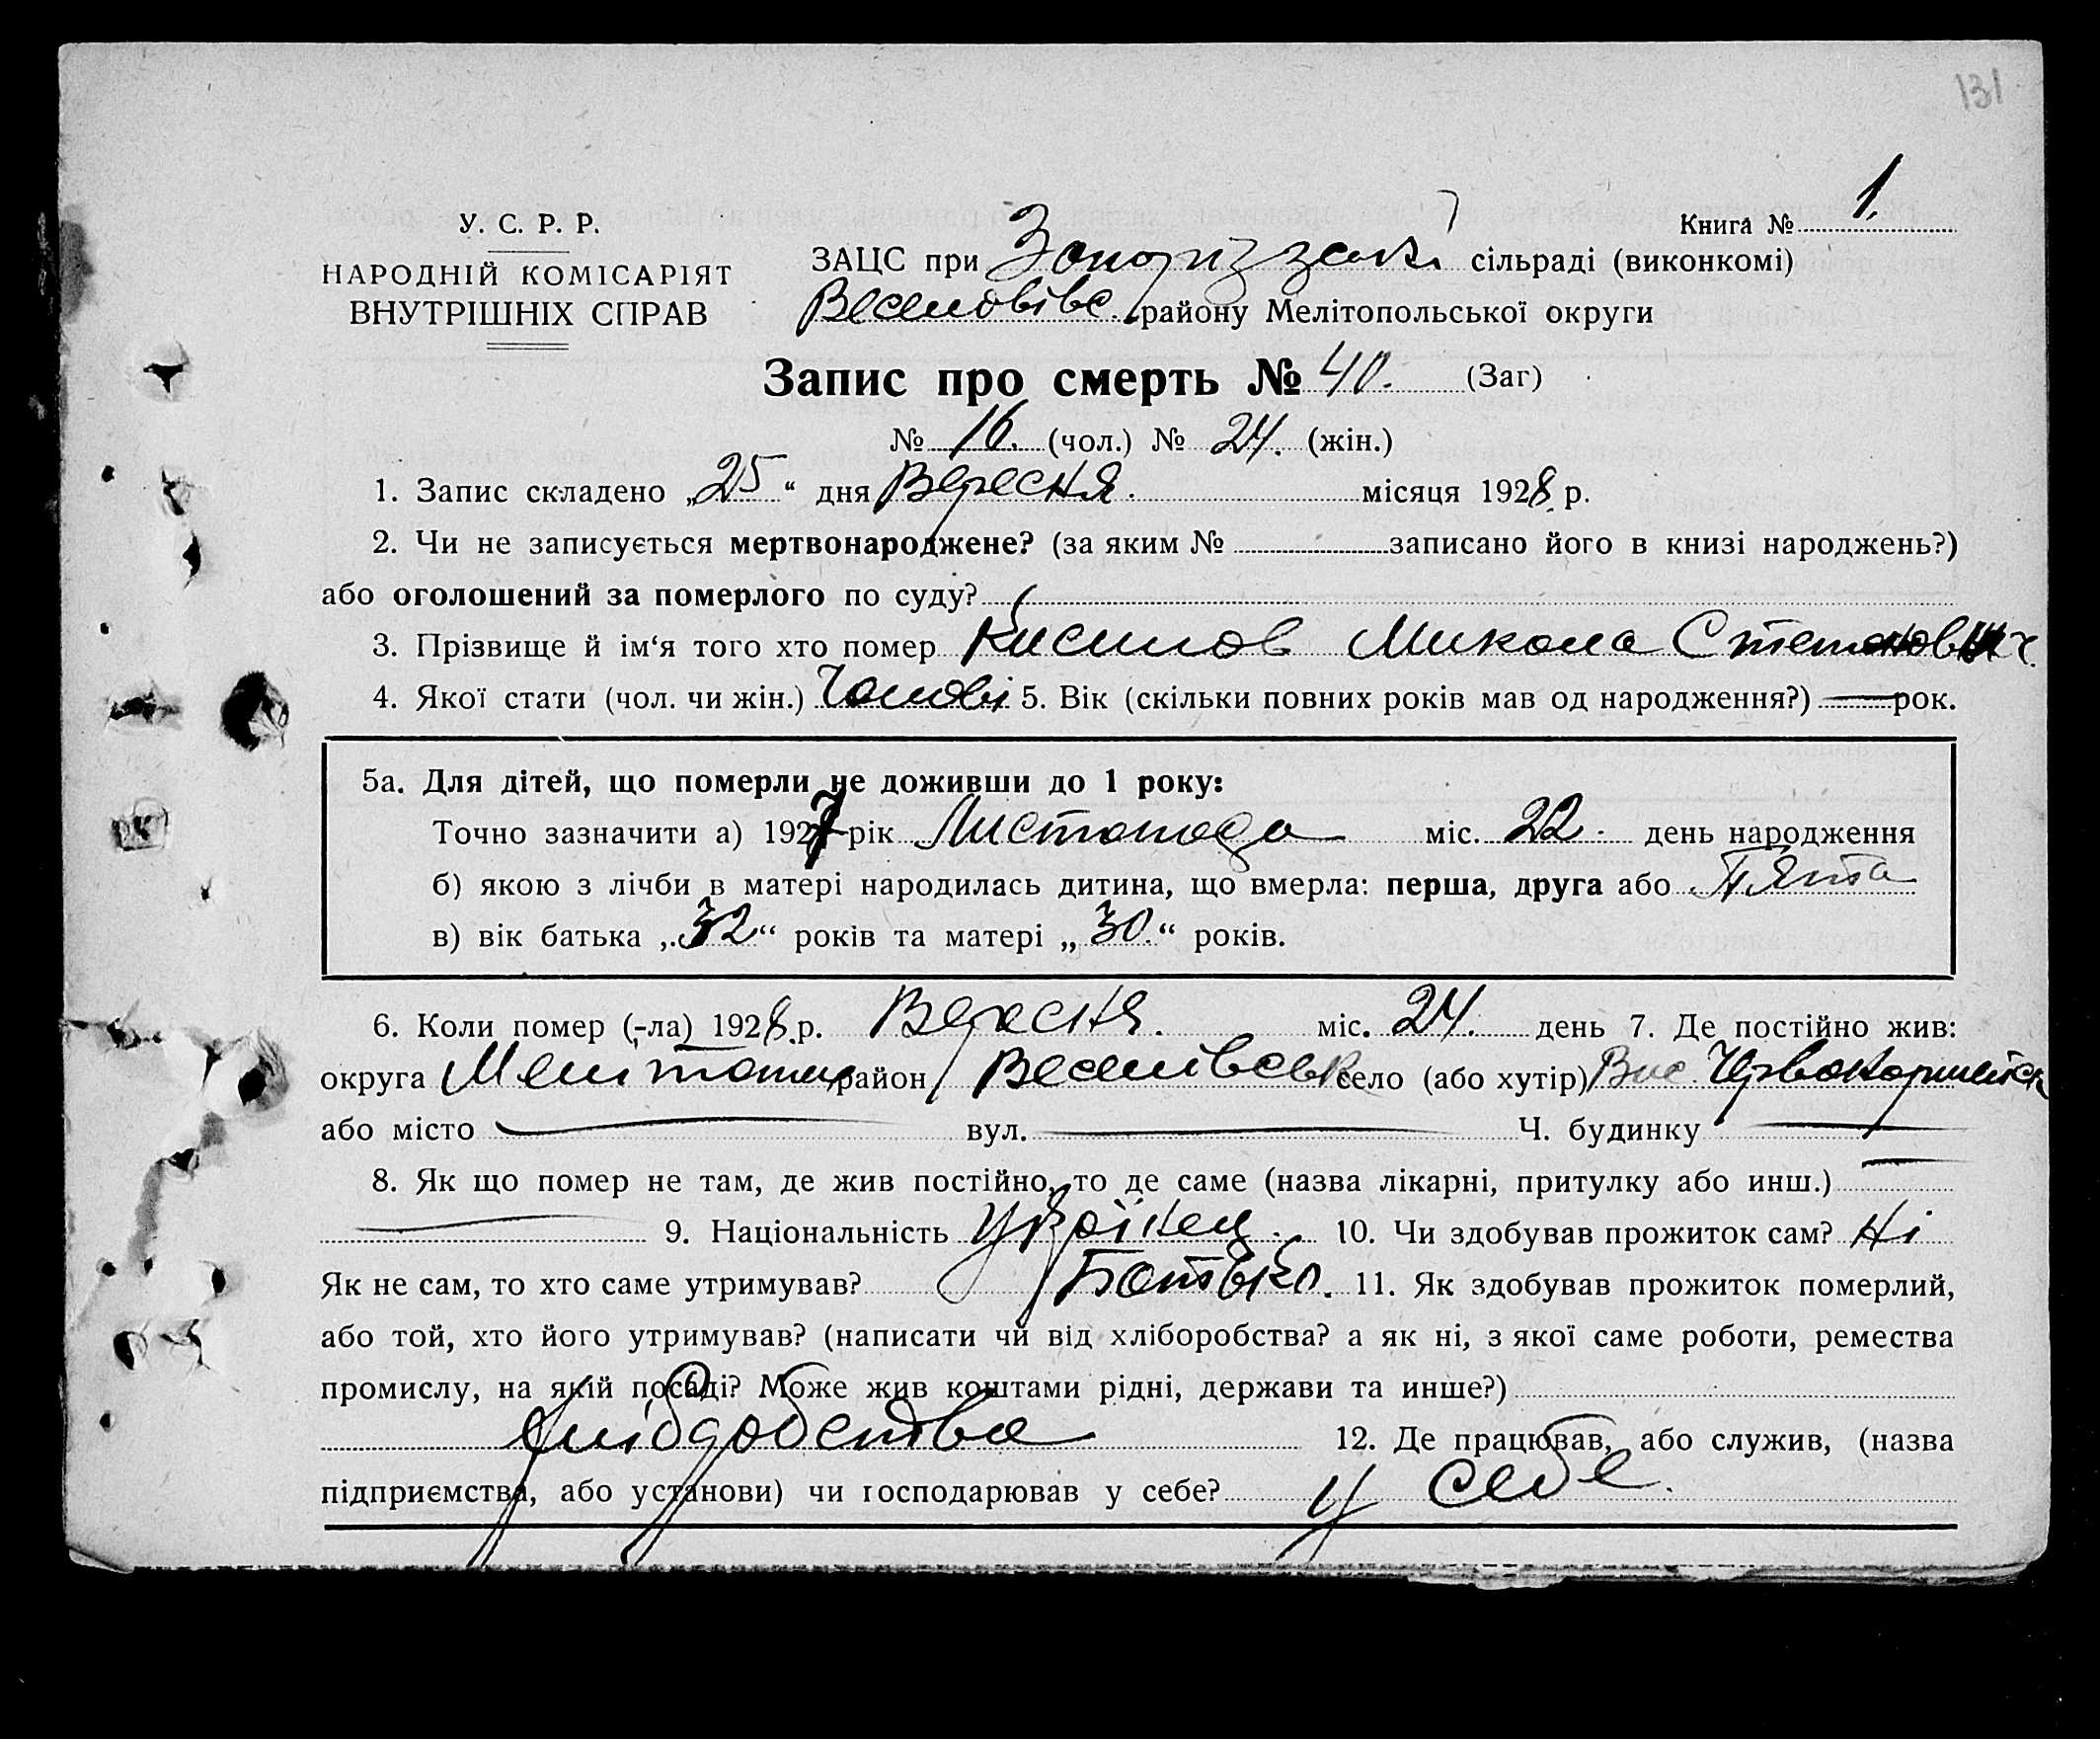 131
Книга № 1.
У. С. Р. Р.
НАРОДНІЙ КОМІСАРІЯТ
ВНУТРІШНІХ СПРАВ
ЗАЦС при сільраді (виконкомі)
району Мелітопольської округи
Запис про смерть № 40. (Заг)
№ 16. (чол.) № 24. (жін.)
1. Запис складено „25“ дня Вересня. місяця 1928 р.
2. Чи не записується мертвонароджене? (за яким № записано його в книзі народжень?)
або оголошений за померлого по суду?
3. Прізвище й ім‘я того хто помер Микола Степанович.
4. Якої стати (чол. чи жін.) Чолові 5. Вік (скільки повних років мав од народження?) — рок.
5а. Для дітей, що померли не доживши до 1 року:
Точно зазначити а) 1927 рік Листопада міс. 22. день народження
б) якою з лічби в матері народилась дитина, що вмерла: перша, друга або Пята
в) вік батька „32“ років та матері „30.“ років.
6. Коли помер (-ла) 1928 р. Вересня. міс. 24. день 7. Де постійно жив:
округа Мелітопил район Веселівськ село (або хутір)
або місто — вул. — Ч. будинку —
8. Як що помер не там, де жив постійно, то де саме (назва лікарні, притулку або инш.) —
— 9. Національність Українец. 10. Чи здобував прожиток сам? Ні
Як не сам, то хто саме утримував? Батько. 11. Як здобував прожиток померлий,
або той, хто його утримував? (написати чи від хліборобства? а як ні, з якої саме роботи, ремества
промислу, на якій посаді? Може жив коштами рідні, держави та инше?)
12. Де працював, або служив, (назва
підприємства, або установи) чи господарював у себе? у себе.